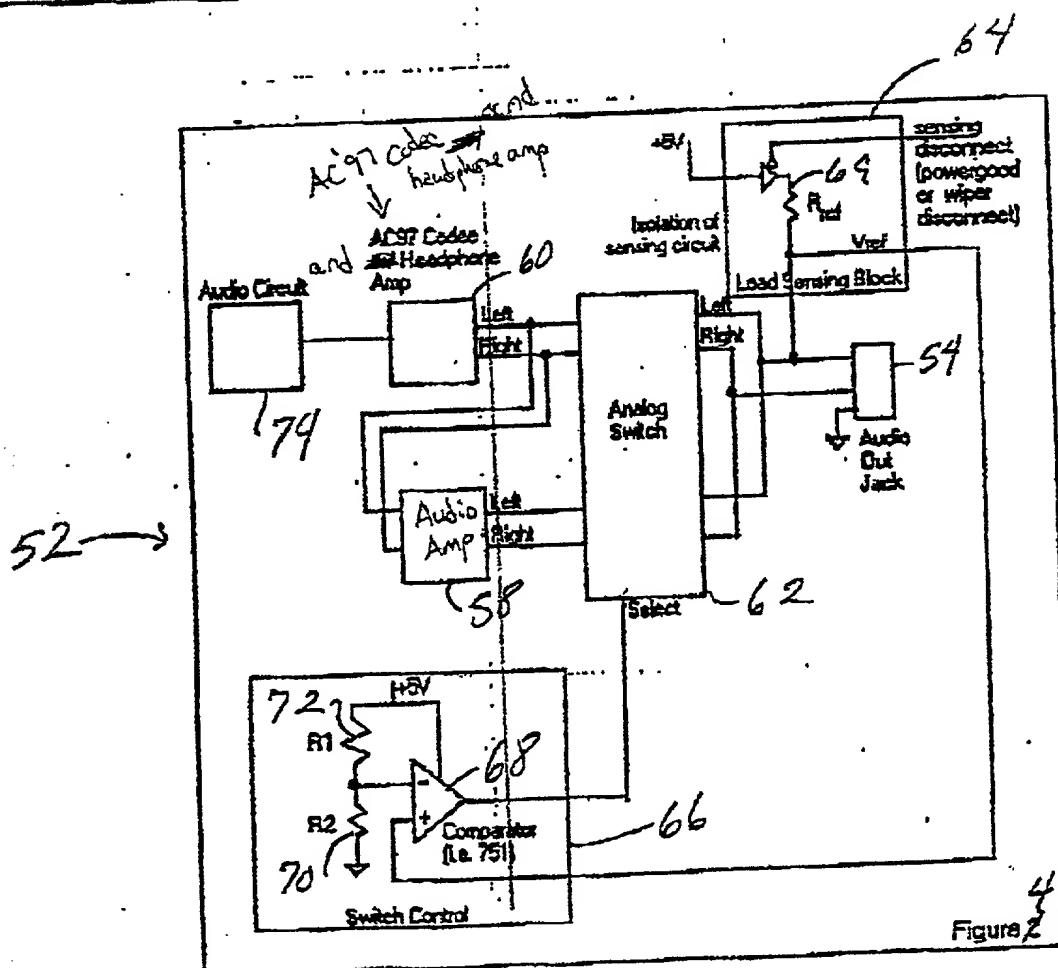 64
and
AC'97 Codec
headphone amp
+5V
sensing
disconnect
(powergood
or wiper
disconnect)
69
Isolation of
sensing circuit
Vref
Load Sensing Block
AC97 Codec
and Headphone
Amp
60
Audio Circuit
Left
Right
Left
Right
54
Analog
Switch
74
Audio
Out
Jack
52
Audio
Amp
Left
Right
58
62
Select
72
+5V
R1
68
-
+
R2
70
Comparator
(i.e. 751)
66
Switch Control
4
Figure 2